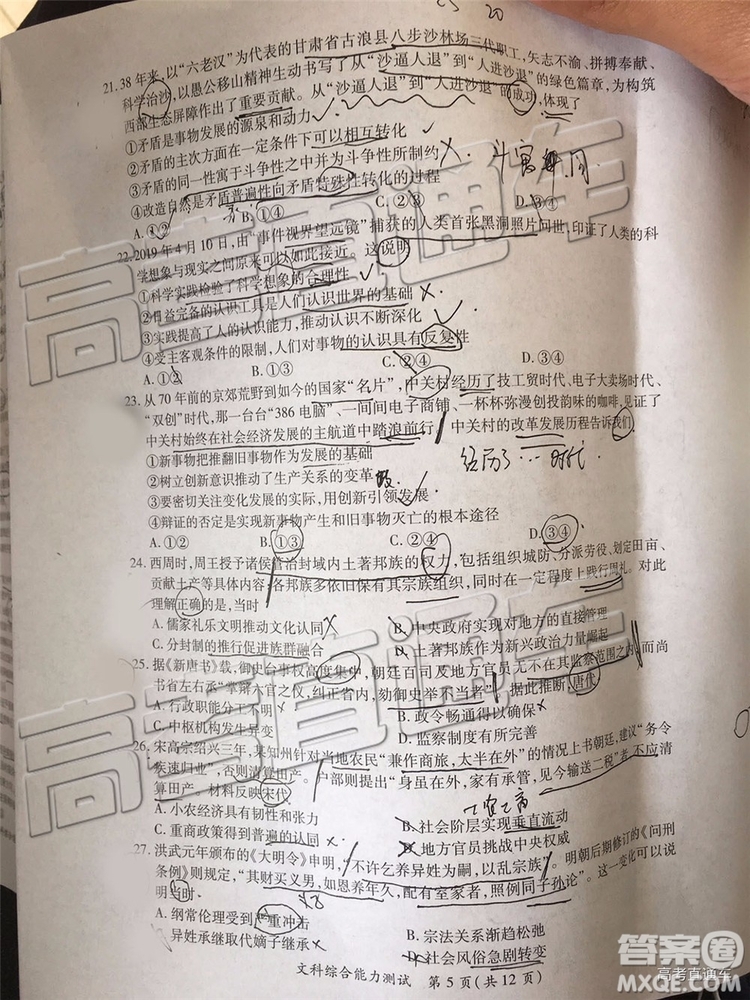 25 20
21. 38年来,以“六老汉”为代表的甘肃省古浪县八步沙林场三代职工,矢志不渝、拼搏奉献、
科学治沙,以愚公移山精神生动书写了从“沙逼人退”到“人进沙退”的绿色篇章,为构筑
西部生态屏障作出了重要贡献。从“沙逼人退”到“人进沙退”的成功,体现了
①矛盾是事物发展的源泉和动力
②矛盾的主次方面在一定条件下可以相互转化
③矛盾的同一性寓于斗争性之中并为斗争性所制约
④改造自然是矛盾普遍性向矛盾特殊性转化的过程
A. ①② B. ①④ C. ②③ D. ③④
22. 2019年4月10日,由“事件视界望远镜”捕获的人类首张黑洞照片问世,印证了人类的科
学想象与现实之间原来可以如此接近。这说明
①科学实践检验了科学想象的合理性
②日益完备的认识工具是人们认识世界的基础
③实践提高了人的认识能力,推动认识不断深化
④受主客观条件的限制,人们对事物的认识具有反复性
A. ①② B. ①③ C. ②④ D. ③④
23. 从70年前的京郊荒野到如今的国家“名片”,中关村经历了技工贸时代、电子大卖场时代、
“双创”时代,那一台台“386电脑”、一间间电子商铺、一杯杯弥漫创投韵味的咖啡,见证了
中关村始终在社会经济发展的主航道中踏浪前行。中关村的改革发展历程告诉我们
①新事物把推翻旧事物作为发展的基础
②树立创新意识推动了生产关系的变革
经历了…时代
③要密切关注变化发展的实际,用创新引领发展
④辩证的否定是实现新事物产生和旧事物灭亡的根本途径
A. ①② B. ①③ C. ②④ D. ③④
24. 西周时,周王授予诸侯管治封域内土著邦族的权力,包括组织城防、分派劳役、划定田亩、
贡献土产等具体内容,各邦族多依旧保有其宗族组织,同时在一定程度上践行周礼。对此
理解正确的是,当时
A. 儒家礼乐文明推动文化认同 B. 中央政府实现对地方的直接管理
C. 分封制的推行促进族群融合 D. 土著邦族作为新兴政治力量崛起
25. 据《新唐书》载,御史台事权高度集中,朝廷百司及地方官员无不在其监察范围之内,而尚
书省左右丞“掌辩六官之仪,纠正省内,劾御史举不当者”。据此推断,唐代
A. 行政职能分工不明 B. 政令畅通得以确保
C. 中枢机构发生异变 D. 监察制度有所完善
26. 宋高宗绍兴三年,某知州针对当地农民“兼作商旅,太半在外”的情况上书朝廷,建议“务令
疾速归业”,否则清算田产。户部则提出“身虽在外,家有承管,见今输送二税”者,不应清
算田产。材料反映宋代
A. 小农经济具有韧性和张力 B. 社会阶层实现垂直流动
C. 重商政策得到普遍的认同 D. 地方官员挑战中央权威
27. 洪武元年颁布的《大明令》申明,“不许乞养异姓为嗣,以乱宗族”。明朝后期修订的《问刑
条例》则规定,“其财买义男,如恩养年久,配有室家者,照例同子孙论”。这一变化可以说
明当时,
A. 纲常伦理受到严重冲击 B. 宗法关系渐趋松弛
异姓承继取代嫡子继承 D. 社会风俗急剧转变
文科综合能力测试 第5页(共12页)
高考直通车
高考直通车
答案圈
MXQE.COM
高考直通车